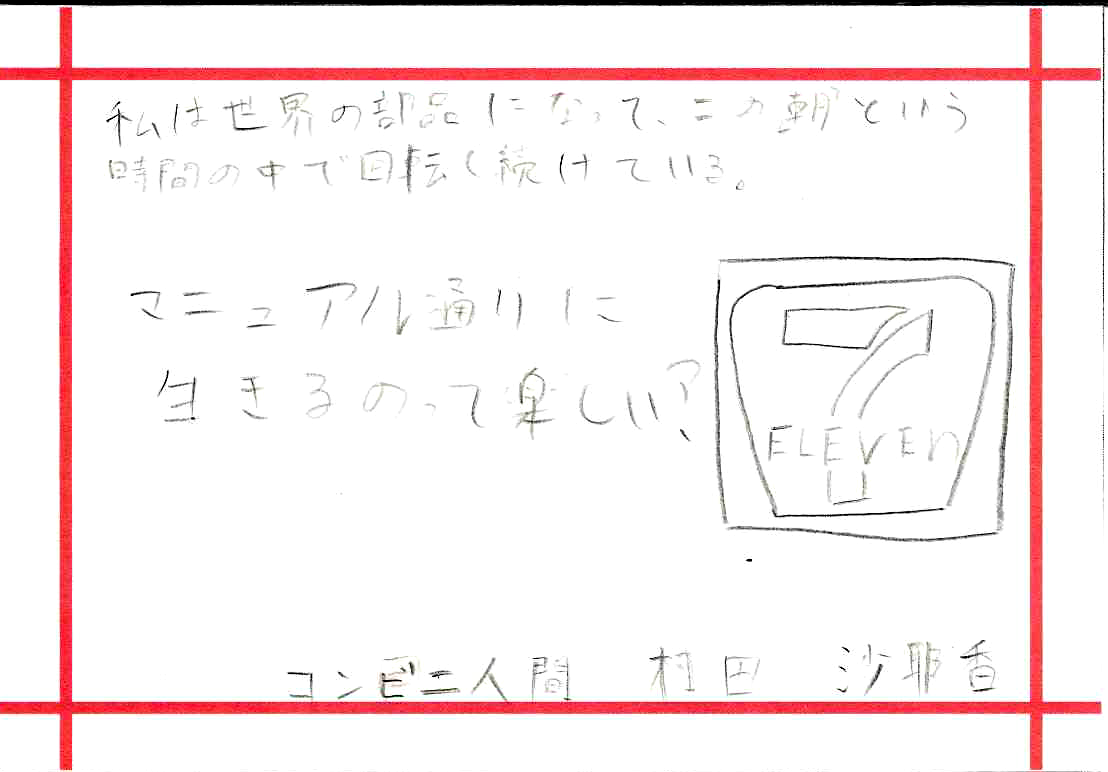 私は世界の部品になって、この朝という
時間の中で回転し続けている。
マニュアル通りに
生きるのって楽しい?
7
ELEVEn
コンビニ人間 村田 沙耶香